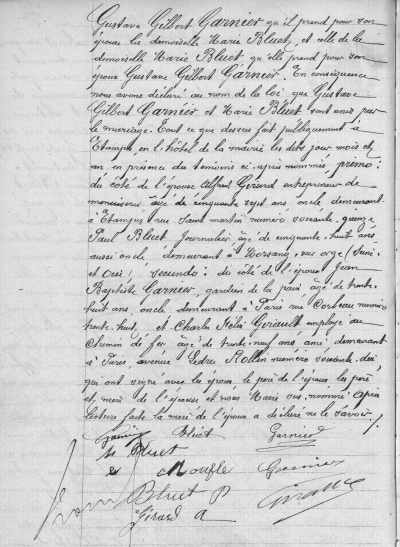 Gustave Gilbert Garnier qu'il prend pour son
épouse la demoiselle Marie Bluet, et celle de la
demoiselle Marie Bluet qu'elle prend pour son
époux Gustave Gilbert Garnier. En conséquence
nous avons déclaré au nom de la loi que Gustave
Gilbert Garnier et Marie Bluet sont unis par
le mariage. Tout ce que dessus fait publiquement à
Etampes en l'hôtel de la mairie les dits jour mois et
an en présence des témoins ci-après nommés, primo:
du côté de l'épouse Alfred Girard entrepreneur de
menuiserie âgé de cinquante sept ans, oncle demeurant
à Etampes rue Saint martin numéro soixante quinze
Paul Bluet, journalier, âgé de cinquante-huit ans
aussi oncle, demeurant à Morsang-sur-orge (Seine
et Oise), secundo: du côté de l'époux Jean
Baptiste Garnier, gardien de la paix âgé de trente
huit ans, oncle demeurant à Paris rue Corbeau numéro
trente-huit, et Charles Girault employé au
Chemin de fer âgé de trente-neuf ans ami demeurant
à Paris, avenue Ledru Rollin numéro soixante-dix
qui ont signé avec les époux, le père de l'époux, les père
et mère de l'épouse et nous Maire sus-nommé après
lecture faite la mère de l'époux a déclaré ne le savoir.
Garnier Bluet Garnier
M Bluet
Moufle Garnier
Bluet P
Girard A